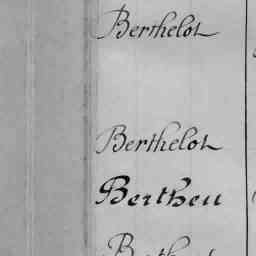 Berthelot
Berthelot
Bertheu